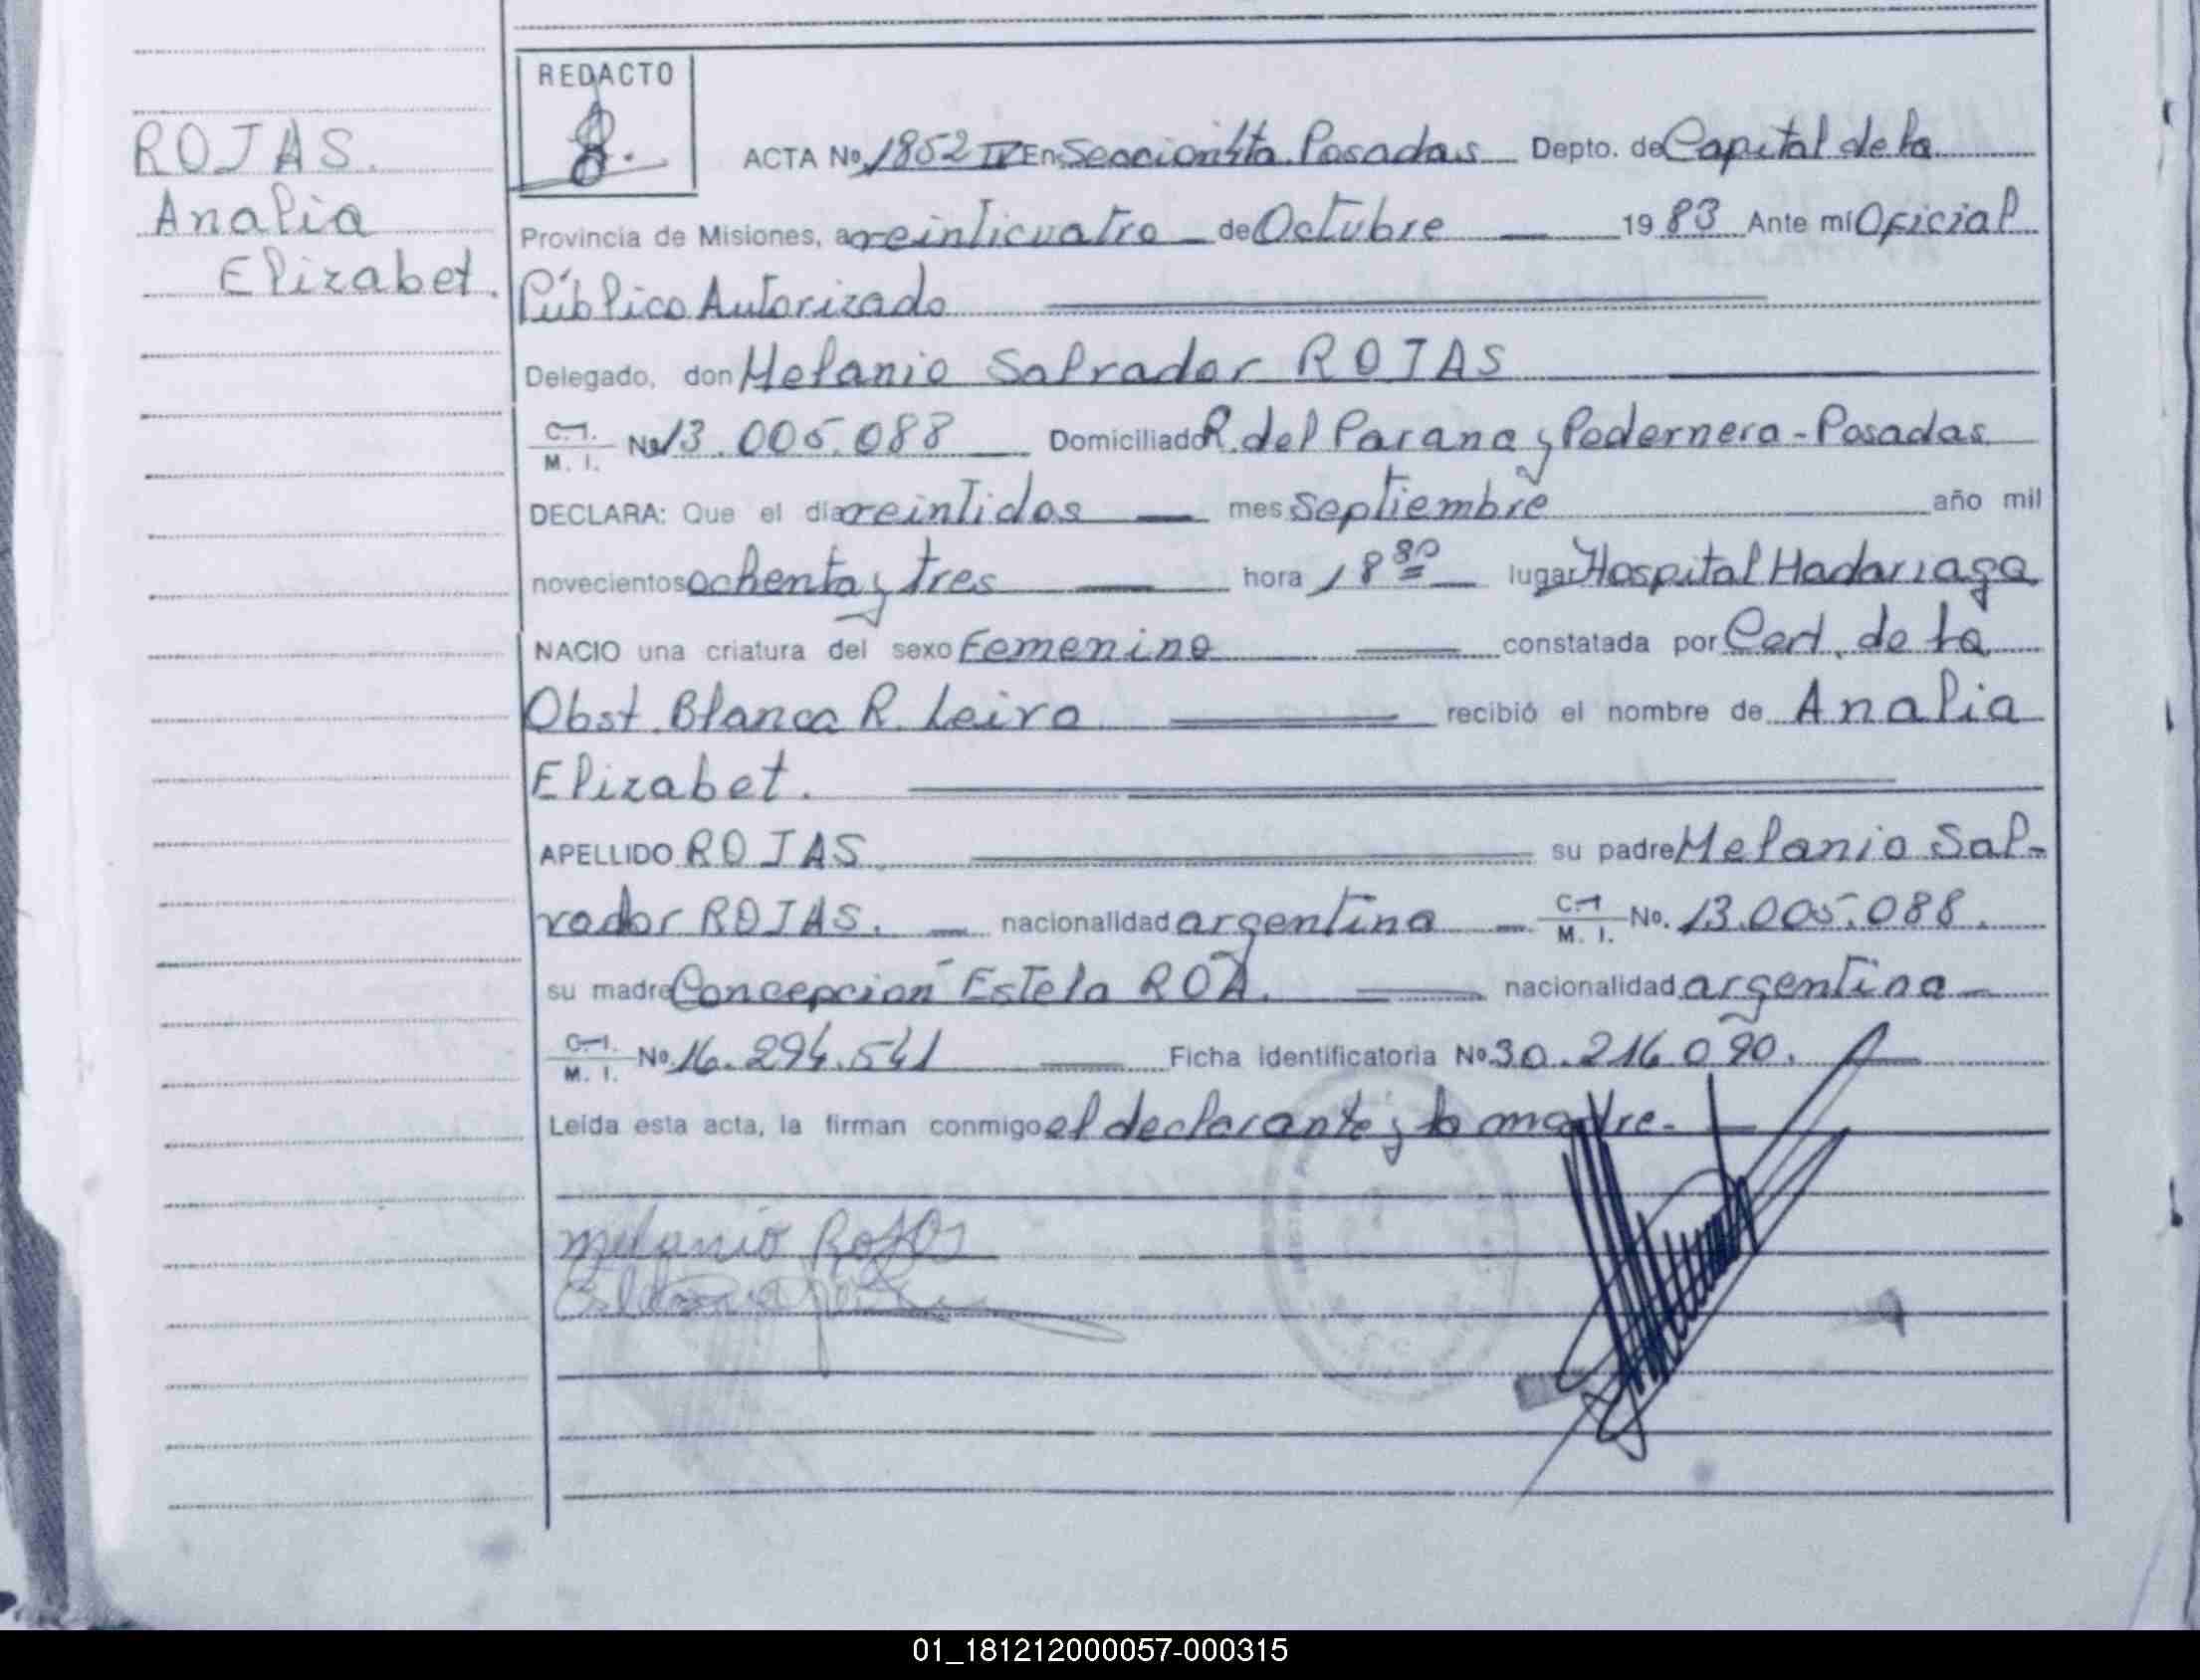 ROJAS.
Analia
Elizabet.
REDACTO
ACTA No. 1852 IV En Sección 1ta Posadas Depto. de Capital de la
Provincia de Misiones, a veinticuatro de Octubre 1983 Ante mí Oficial
Público Autorizado
Delegado, don Melanio Salvador ROJAS
C. I.
M. I. No. 13.005.088 Domiciliado R. del Parana y Pedernera - Posadas
DECLARA: Que el día veintidos mes septiembre año mil
novecientos ochenta y tres hora 18 30 lugar Hospital Madariaga
NACIO una criatura del sexo Femenino constatada por Cert. de la
Obst. Blanca R. Leiro recibió el nombre de Analia
Elizabet.
APELLIDO ROJAS su padre Melanio Sal-
vador ROJAS. nacionalidad argentina C. I.
M. I. No. 13.005.088.
su madre Concepción Estela ROA. nacionalidad argentina
C. I.
M. I. No. 16.294.541 Ficha identificatoria No 30.216.090.
Leída esta acta, la firman conmigo el declarante y la madre.
Melanio Rojas
01_181212000057-000315